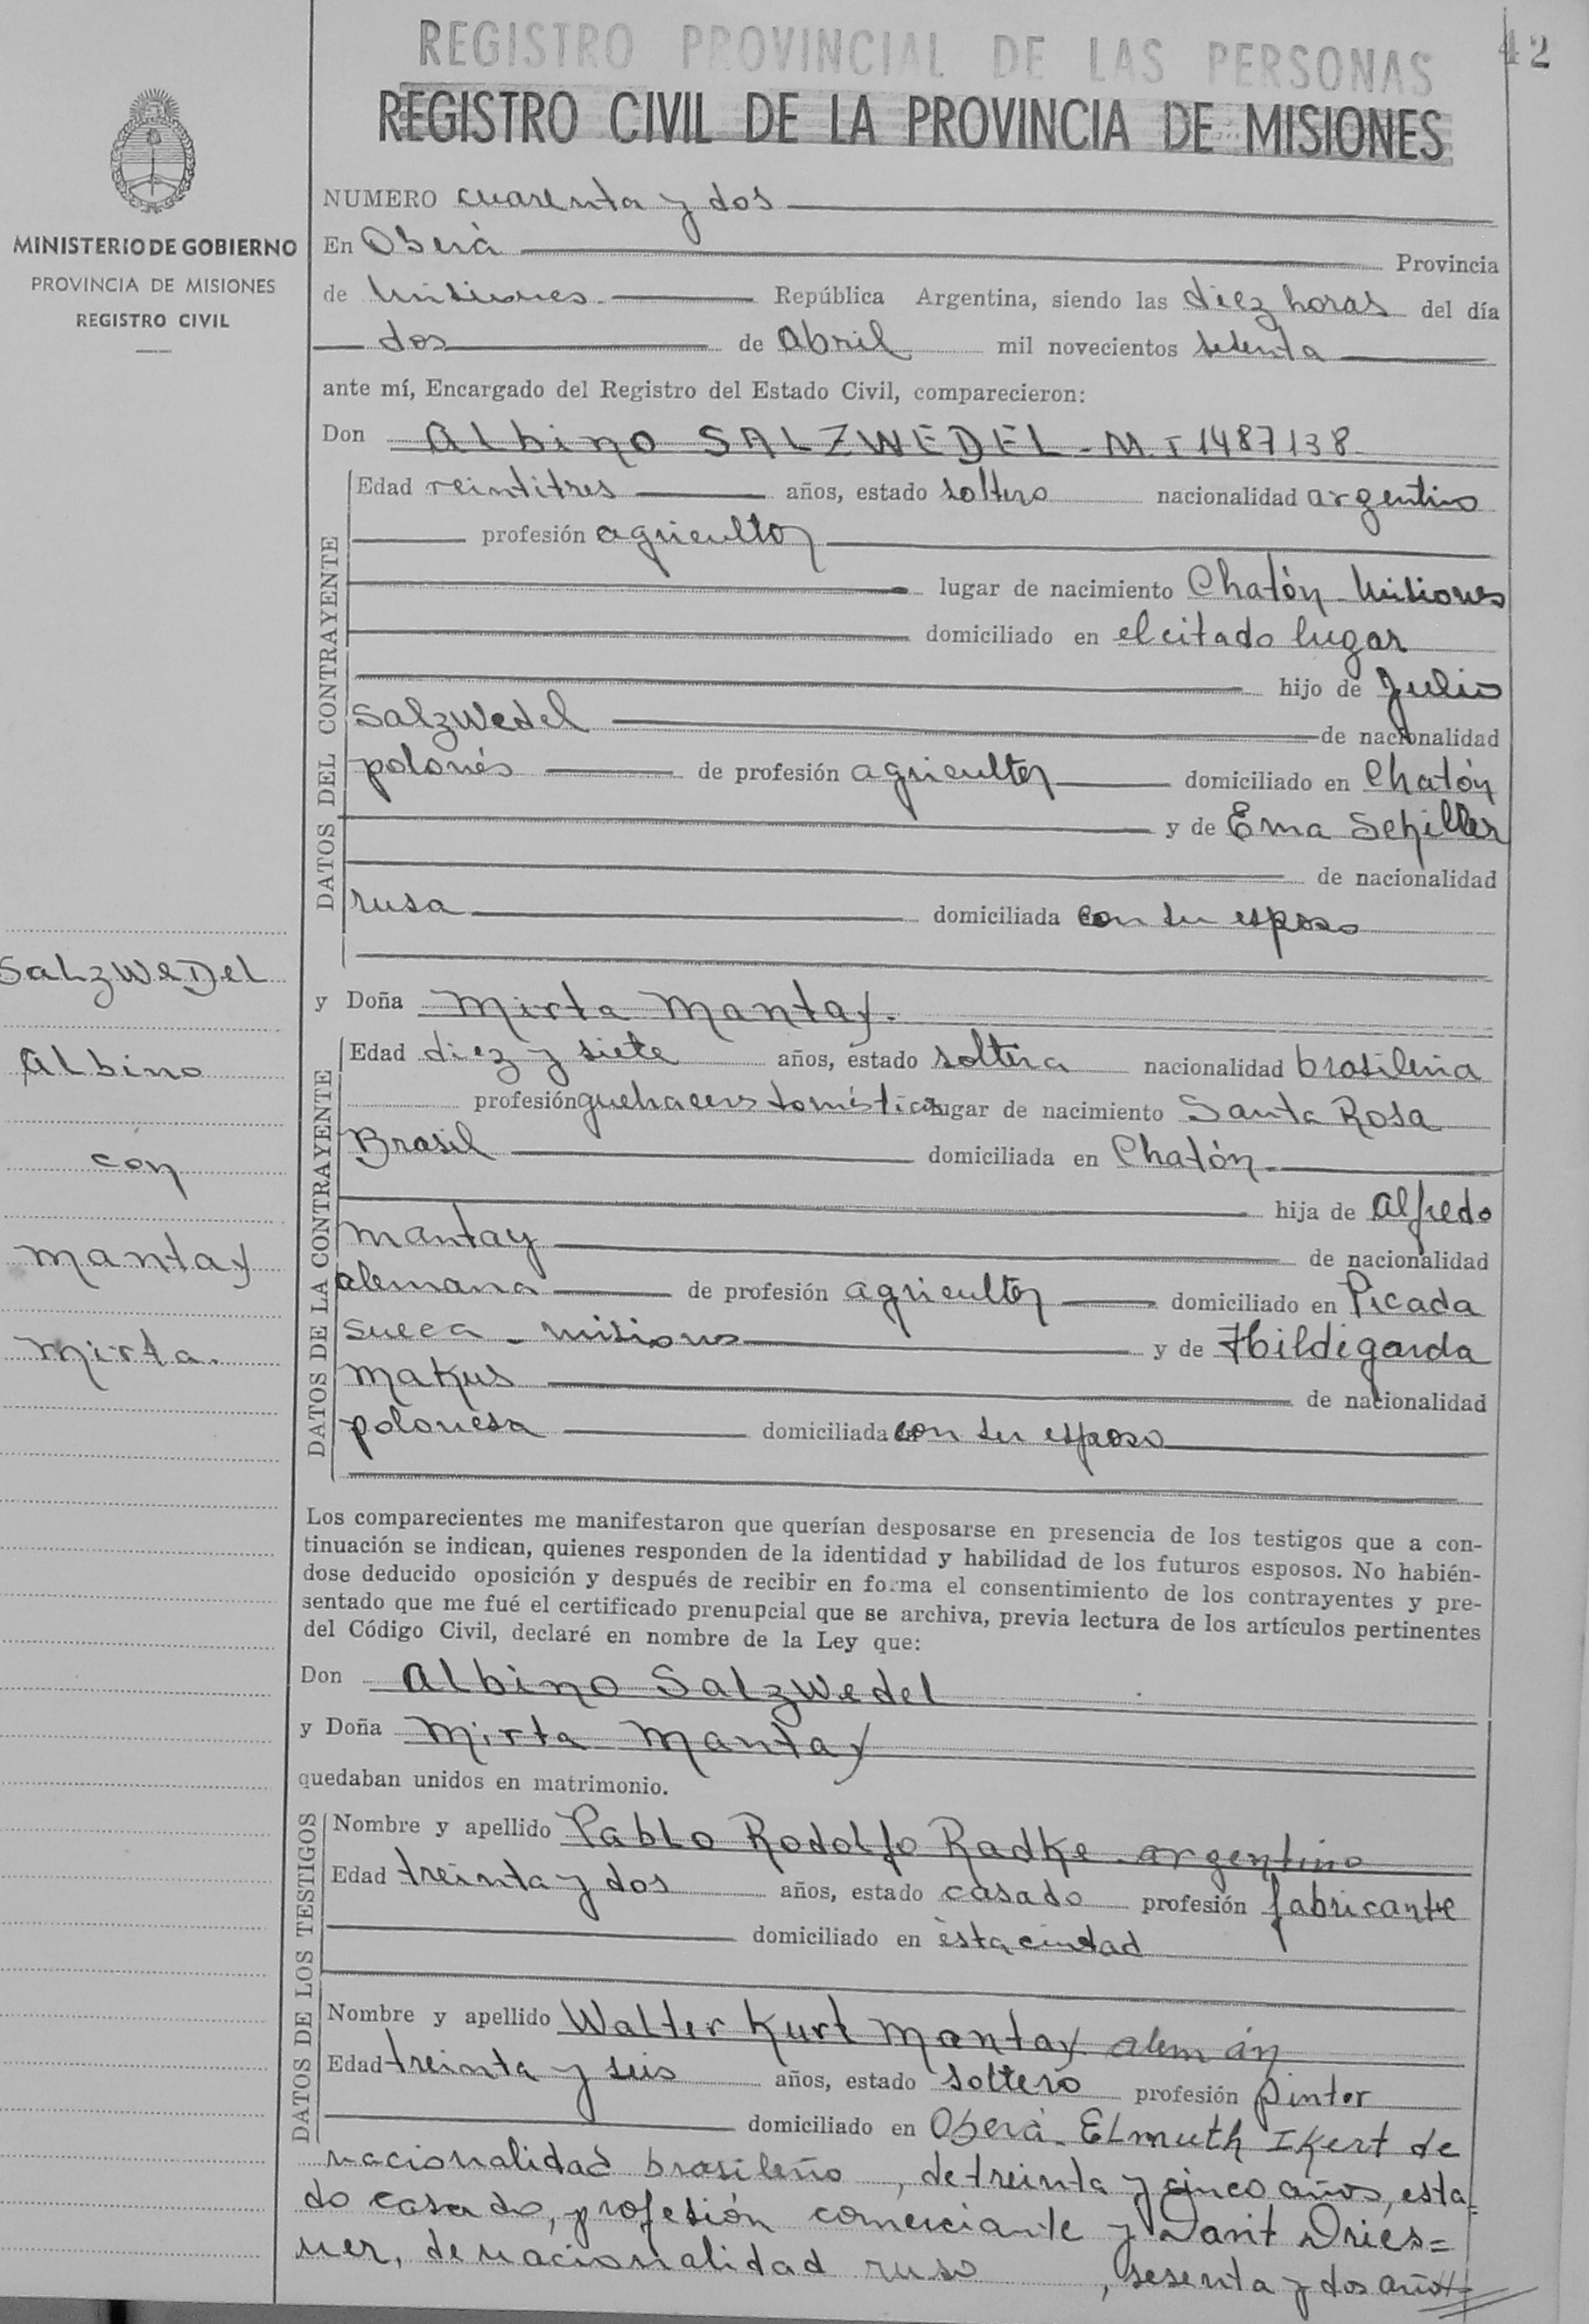 REGISTRO PROVINCIAL DE LAS PERSONAS
42
REGISTRO CIVIL DE LA PROVINCIA DE MISIONES
MINISTERIO DE GOBIERNO
PROVINCIA DE MISIONES
REGISTRO CIVIL
NUMERO cuarenta y dos
En Oberá Provincia
de Misiones República Argentina, siendo las diez horas del día
dos de Abril mil novecientos setenta
ante mí, Encargado del Registro del Estado Civil, comparecieron:
Don Albino SALZWEDEL - M.I 1487138
DATOS DEL CONTRAYENTE
Edad veintitres años, estado soltero nacionalidad argentino
profesión agricultor
lugar de nacimiento Chatón - Misiones
domiciliado en el citado lugar
hijo de Julio
Salzwedel de nacionalidad
polonés de profesión agricultor domiciliado en Chatón
y de Ema Schiller
de nacionalidad
rusa domiciliada con su esposo
SalzWeDel
Albino
con
Mantay
Mirta.
y Doña Mirta Mantay.
DATOS DE LA CONTRAYENTE
Edad diez y siete años, estado soltera nacionalidad brasileña
profesión quehaceres domésticos lugar de nacimiento Santa Rosa
Brasil domiciliada en Chatón.
hija de Alfredo
Mantay de nacionalidad
alemana de profesión agricultor domiciliado en Picada
Sueca - Misiones y de Hildegarda
Makus de nacionalidad
polonesa domiciliada con su esposo
Los comparecientes me manifestaron que querían desposarse en presencia de los testigos que a con-
tinuación se indican, quienes responden de la identidad y habilidad de los futuros esposos. No habién-
dose deducido oposición y después de recibir en forma el consentimiento de los contrayentes y pre-
sentado que me fué el certificado prenupcial que se archiva, previa lectura de los artículos pertinentes
del Código Civil, declaré en nombre de la Ley que:
Don Albino Salzwedel
y Doña Mirta Mantay
quedaban unidos en matrimonio.
DATOS DE LOS TESTIGOS
Nombre y apellido Pablo Rodolfo Radke - argentino
Edad treinta y dos años, estado casado profesión fabricante
domiciliado en ésta ciudad
Nombre y apellido Walter Kurt Mantay alemán
Edad treinta y seis años, estado soltero profesión pintor
domiciliado en Oberá. Elmuth Ikert de
nacionalidad brasileño, de treinta y cinco años, esta=
do casado, profesión comerciante y Davit Dries=
ner, de nacionalidad ruso, sesenta y dos años